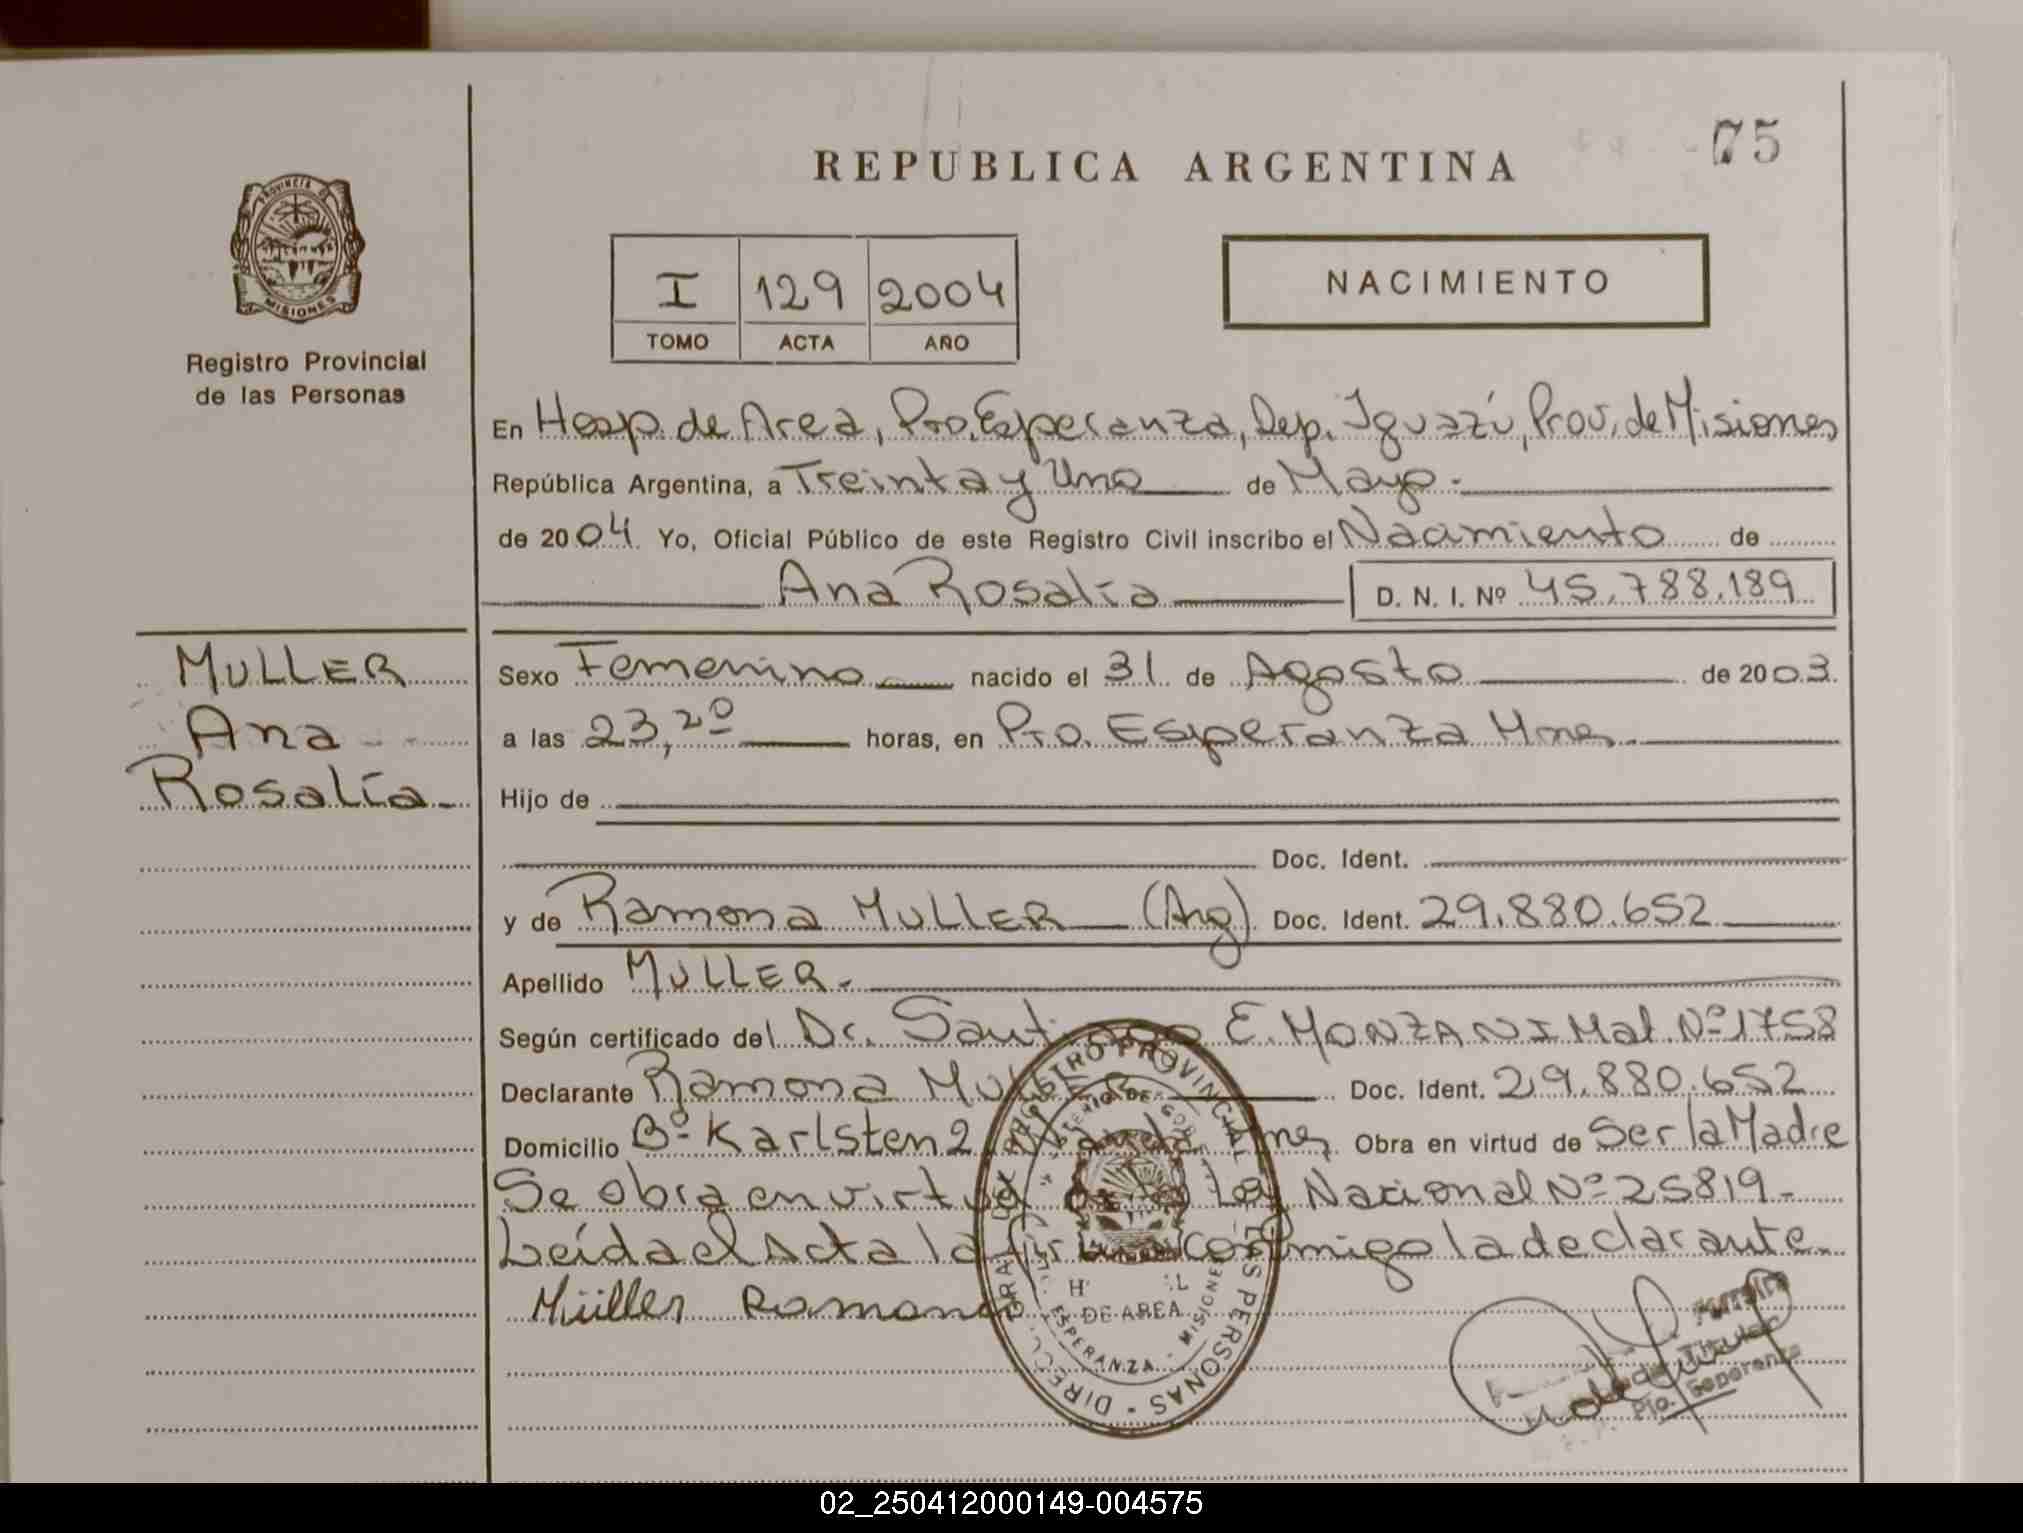 75
REPUBLICA ARGENTINA
PROVINCIA DE
MISIONES
I 129 2004
TOMO ACTA AÑO
NACIMIENTO
Registro Provincial
de las Personas
En Hosp. de Area, Pto. Esperanza, Dep. Iguazú, Prov. de Misiones
República Argentina, a Treinta y Uno de Mayo.
de 2004. Yo, Oficial Público de este Registro Civil inscribo el Nacimiento de
Ana Rosalía D. N. I. Nº 45.788.189
MULLER
Ana
Rosalía
Sexo Femenino nacido el 31 de Agosto de 2003.
a las 23,20 horas, en Pto. Esperanza Mnes
Hijo de
Doc. Ident.
y de Ramona MULLER (Arg) Doc. Ident. 29.880.652
Apellido MULLER.
Según certificado del Dr. Santiago E. MONZANI Mat. Nº 1758
Declarante Ramona MULLER Doc. Ident. 29.880.652
Domicilio Bº Karlsten 2 Mnes Obra en virtud de Ser la Madre
Se obra en virtud de la Ley Nacional Nº 25819-
Leída el Acta la conmigo la declarante.
Müller Ramona
REGISTRO PROVINCIAL DE LAS PERSONAS
DE AREA
ESPERANZA - MISIONES
Titular
Pto. Esperanza
02_250412000149-004575